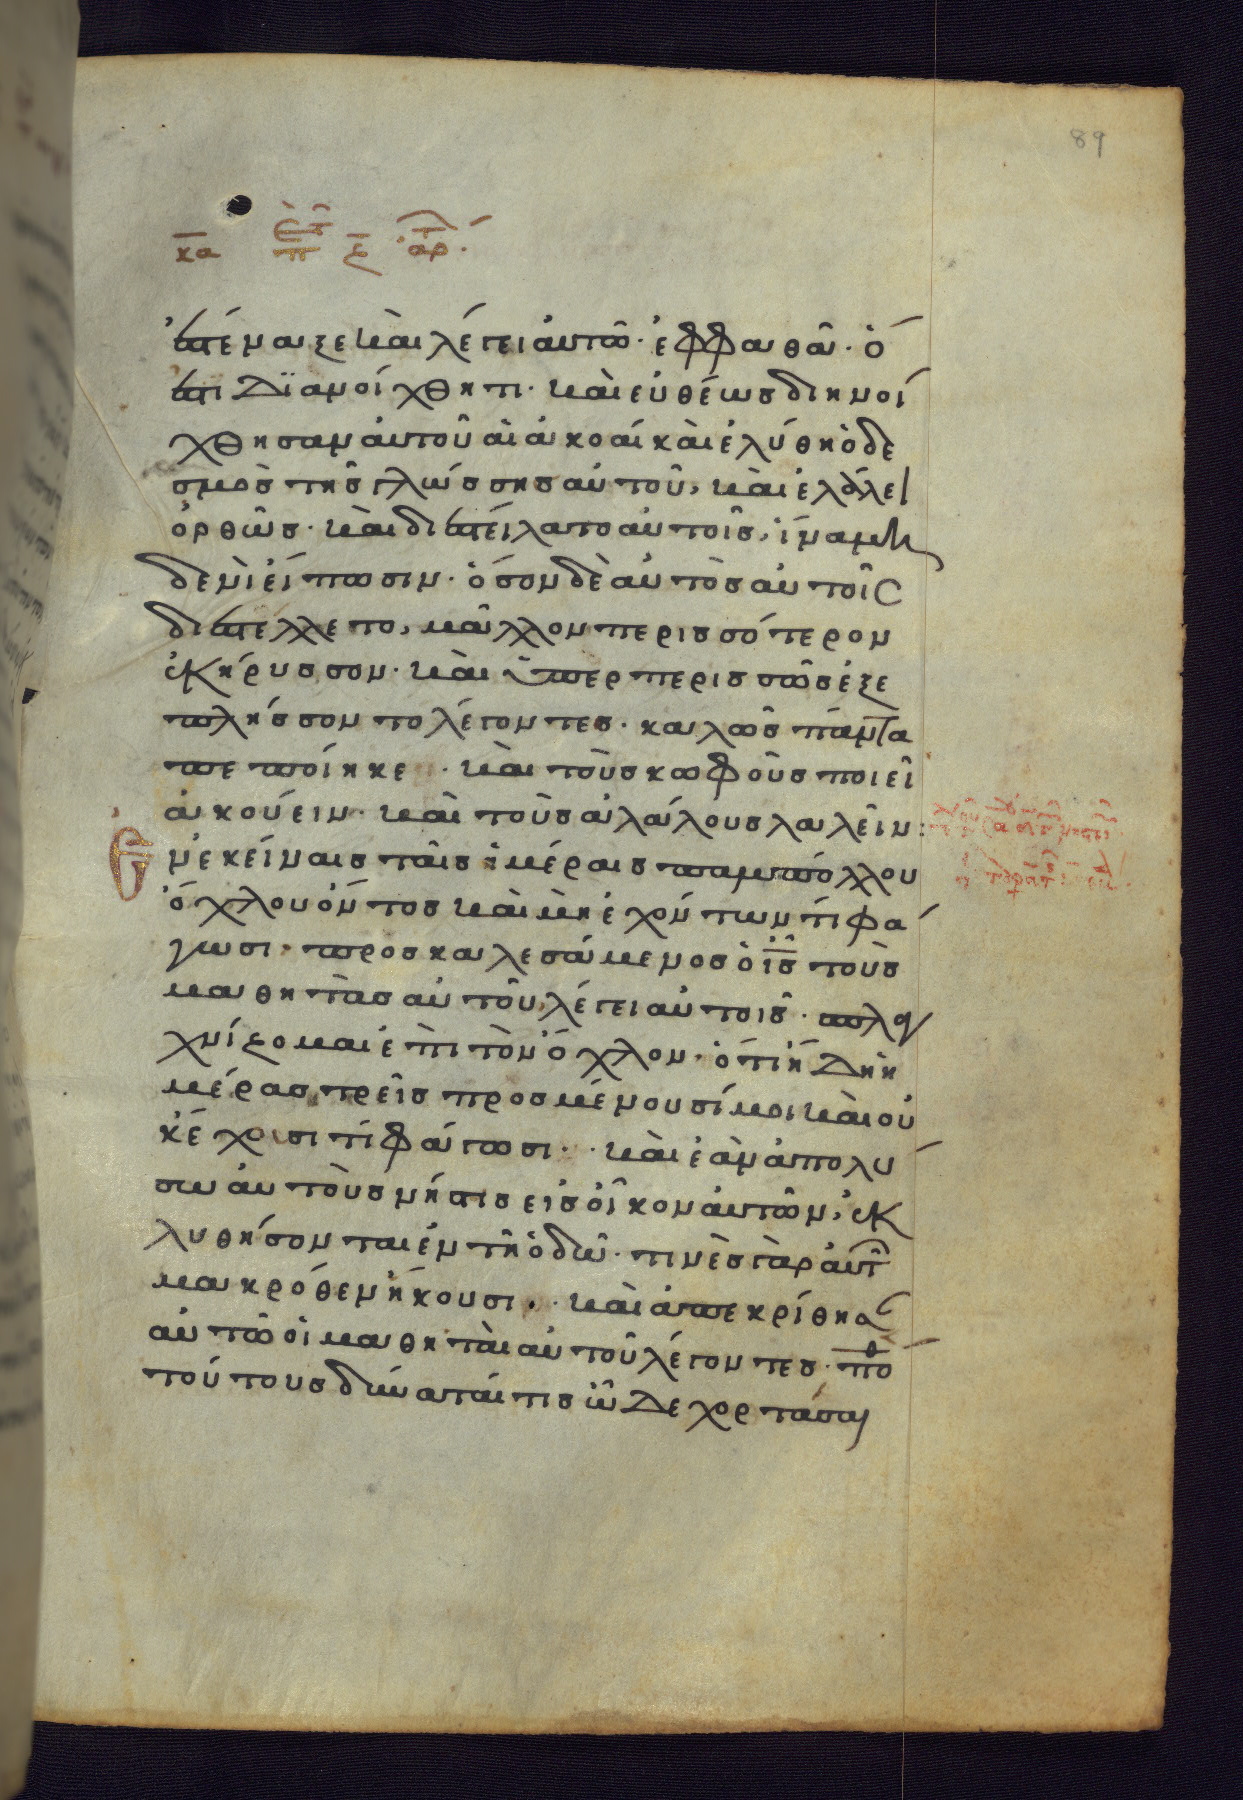 89
κα ἐπὶ τ ζ ἄρτ
ἐστέναξε καὶ λέγει αὐτῶ· ἐφφαθᾶ· ὅ
ἐστι Διανοίχθητι· καὶ εὐθέως διηνοί
χθησαν αὐτοῦ αἱ ἀκοαί καὶ ἐλύθη ὁ δε
σμὸς τῆς γλώσσης αὐτοῦ, καὶ ἐλάλει
ὀρθῶς· καὶ διεστείλατο αὐτοῖς, ἵνα μη
δενὶ εἴπωσιν· ὅσον δὲ αὐτὸς αὐτοῖς
διεστέλλετο, μᾶλλον περισσότερον
ἐκήρυσσον· καὶ ὑπερπερισσῶς ἐξε
πλήσσοντο λέγοντες· καλῶς πάντα
πεποίηκε· καὶ τοὺς κωφοὺς ποιεῖ
ἀκούειν· καὶ τοὺς ἀλάλους λαλεῖν:
Ἐν ἐκείναις ταῖς ἡμέραις παμπόλλου
ὄχλου ὄντος καὶ μὴ ἐχόντων τί φά
γωσι· προσκαλεσάμενος ὁ ἰς τοὺς
μαθητὰς αὐτοῦ, λέγει αὐτοῖς· σπλα
χνίζομαι ἐπὶ τὸν ὄχλον· ὅτι ἤΔη ἡ
μέρας τρεῖς προσμένουσί μοι καὶ οὐ
κ ἔχουσι τί φάγωσι· καὶ ἐὰν ἀπολύ
σω αὐτοὺς νήστις εἰς οἶκον αὐτῶν, ἐκ
λυθήσονται ἐν τῆ ὁδῶ· τινὲς γὰρ αὐτ
μακρόθεν ἥκουσι· καὶ ἀπεκρίθησ
αὐτῶ οἱ μαθηταὶ αὐτοῦ λέγοντες· πόθ
τούτους δυναταί τις ὧΔε χορτάσαι